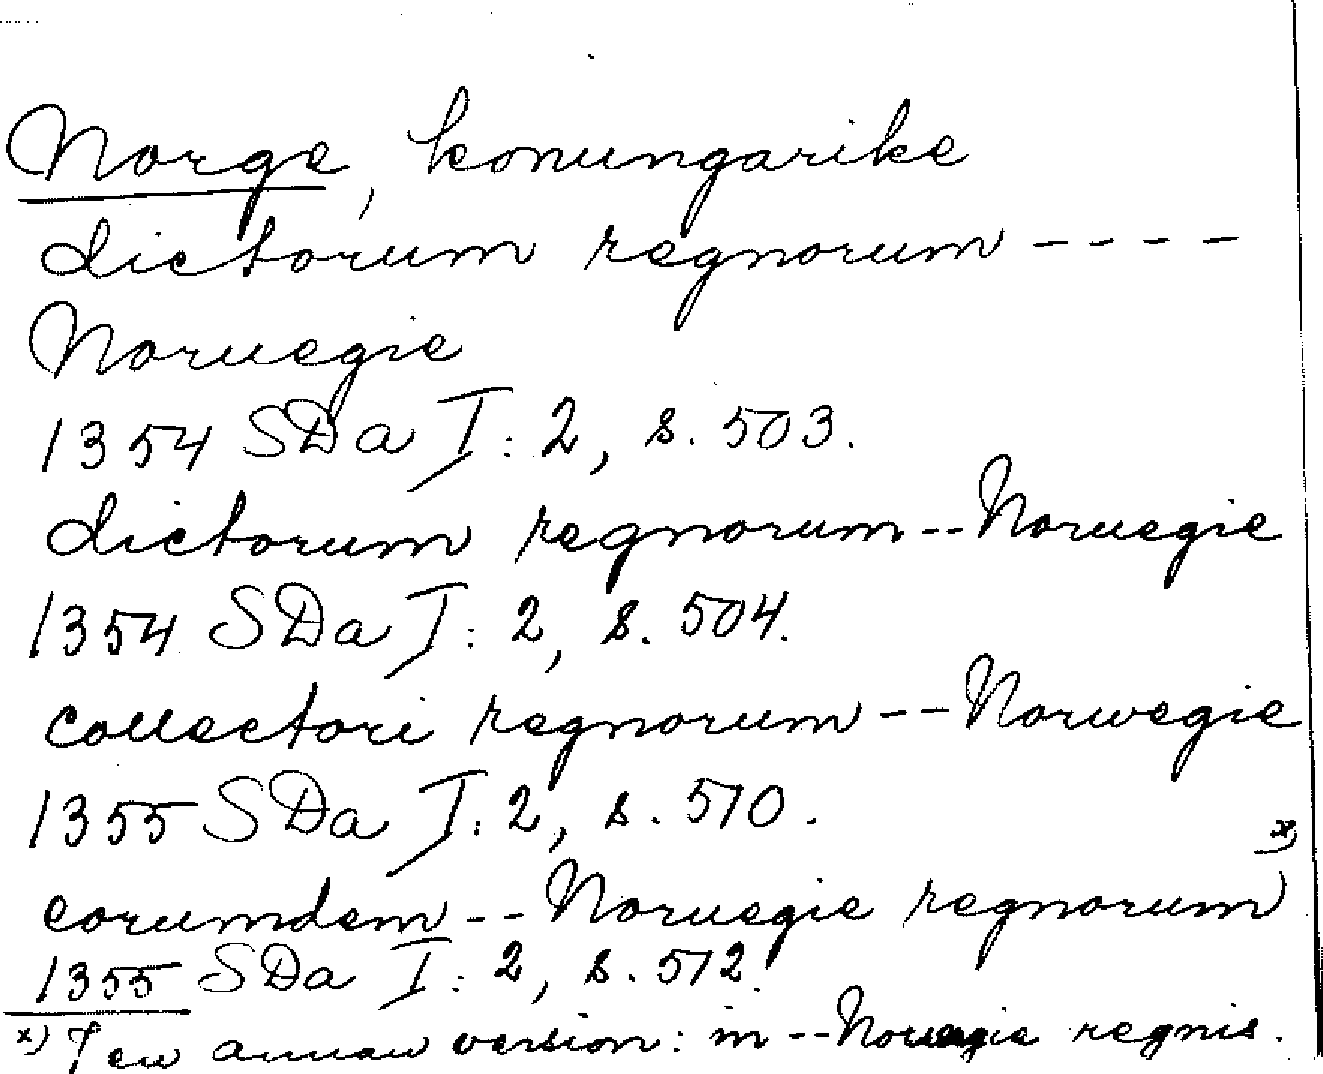 Norge, konungarike
dictorum regnorum ----
Noruegie
1354 SDa I:2, s. 503.
dictorum regnorum -- Noruegie
1354 SDa I:2, s. 504.
collectori regnorum -- Norwegie
1355 SDa I:2, s. 510.
eorumdem -- Noruegie regnorum x)
1355 SDa I:2, s. 512.
x) I en annan version: in -- Noruegie regnis.